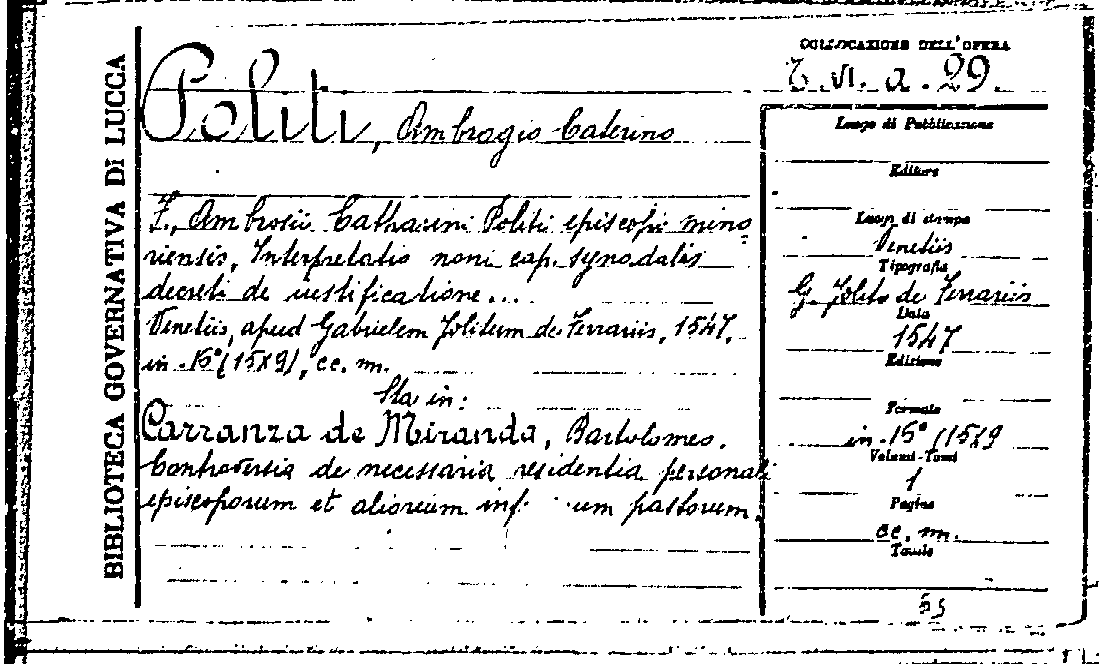 BIBLIOTECA GOVERNATIVA DI LUCCA
COLLOCAZIONE DELL'OPERA
VI. a. 29.
Politi, Ambrogio Caterino
F. Ambrosii Catharini Politi episcopi mino=
riensis, Interpretatio noni cap. synodalis
decreti de iustificatione...
Venetiis, apud Gabrielem Jolitum de Ferrariis, 1547.
in 16° (15x9), cc. m.
Sta in:
Carranza de Miranda, Bartolomeo.
Controversia de necessaria residentia personali
episcoporum et aliorum um pastorum.
Luogo di Pubblicazione
Editore
Luogo di stampa
Venetiis
Tipografia
G. Jolito de Ferrariis
Data
1547
Edizione
Formato
in 16° (15x9
Volumi-Tomi
1
Pagine
cc. m.
Tavole